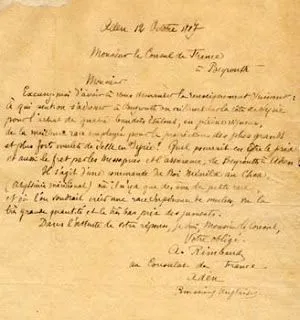 Aden 12 Octobre 1887
Monsieur le Consul de France
à Beyrouth
Monsieur
Excusez-moi d'avoir à vous demander le renseignement suivant:
à qui peut-on s'adresser à Beyrouth ou ailleurs sur la côte de Syrie
pour l'achat de quatre baudets étalons, en pleine vigueur,
de la meilleure race employée pour la procréation des plus grands
et plus forts mulets de selle en Syrie? Quel pourrait en être le prix
et aussi le fret par les Messageries et assurance, de Beyrouth à Aden?
Il s'agit d'une commande du Roi Ménélik au Choa
(Abyssinie méridionale) où il n'y a que des ânes de petite race,
et où l'on voudrait créer une race supérieure de mulets, vu la
très grande quantité et le très bas prix des juments.
Dans l'attente de votre réponse, je suis, Monsieur le Consul,
Votre obligé
A. Rimbaud
au Consulat de France
Aden